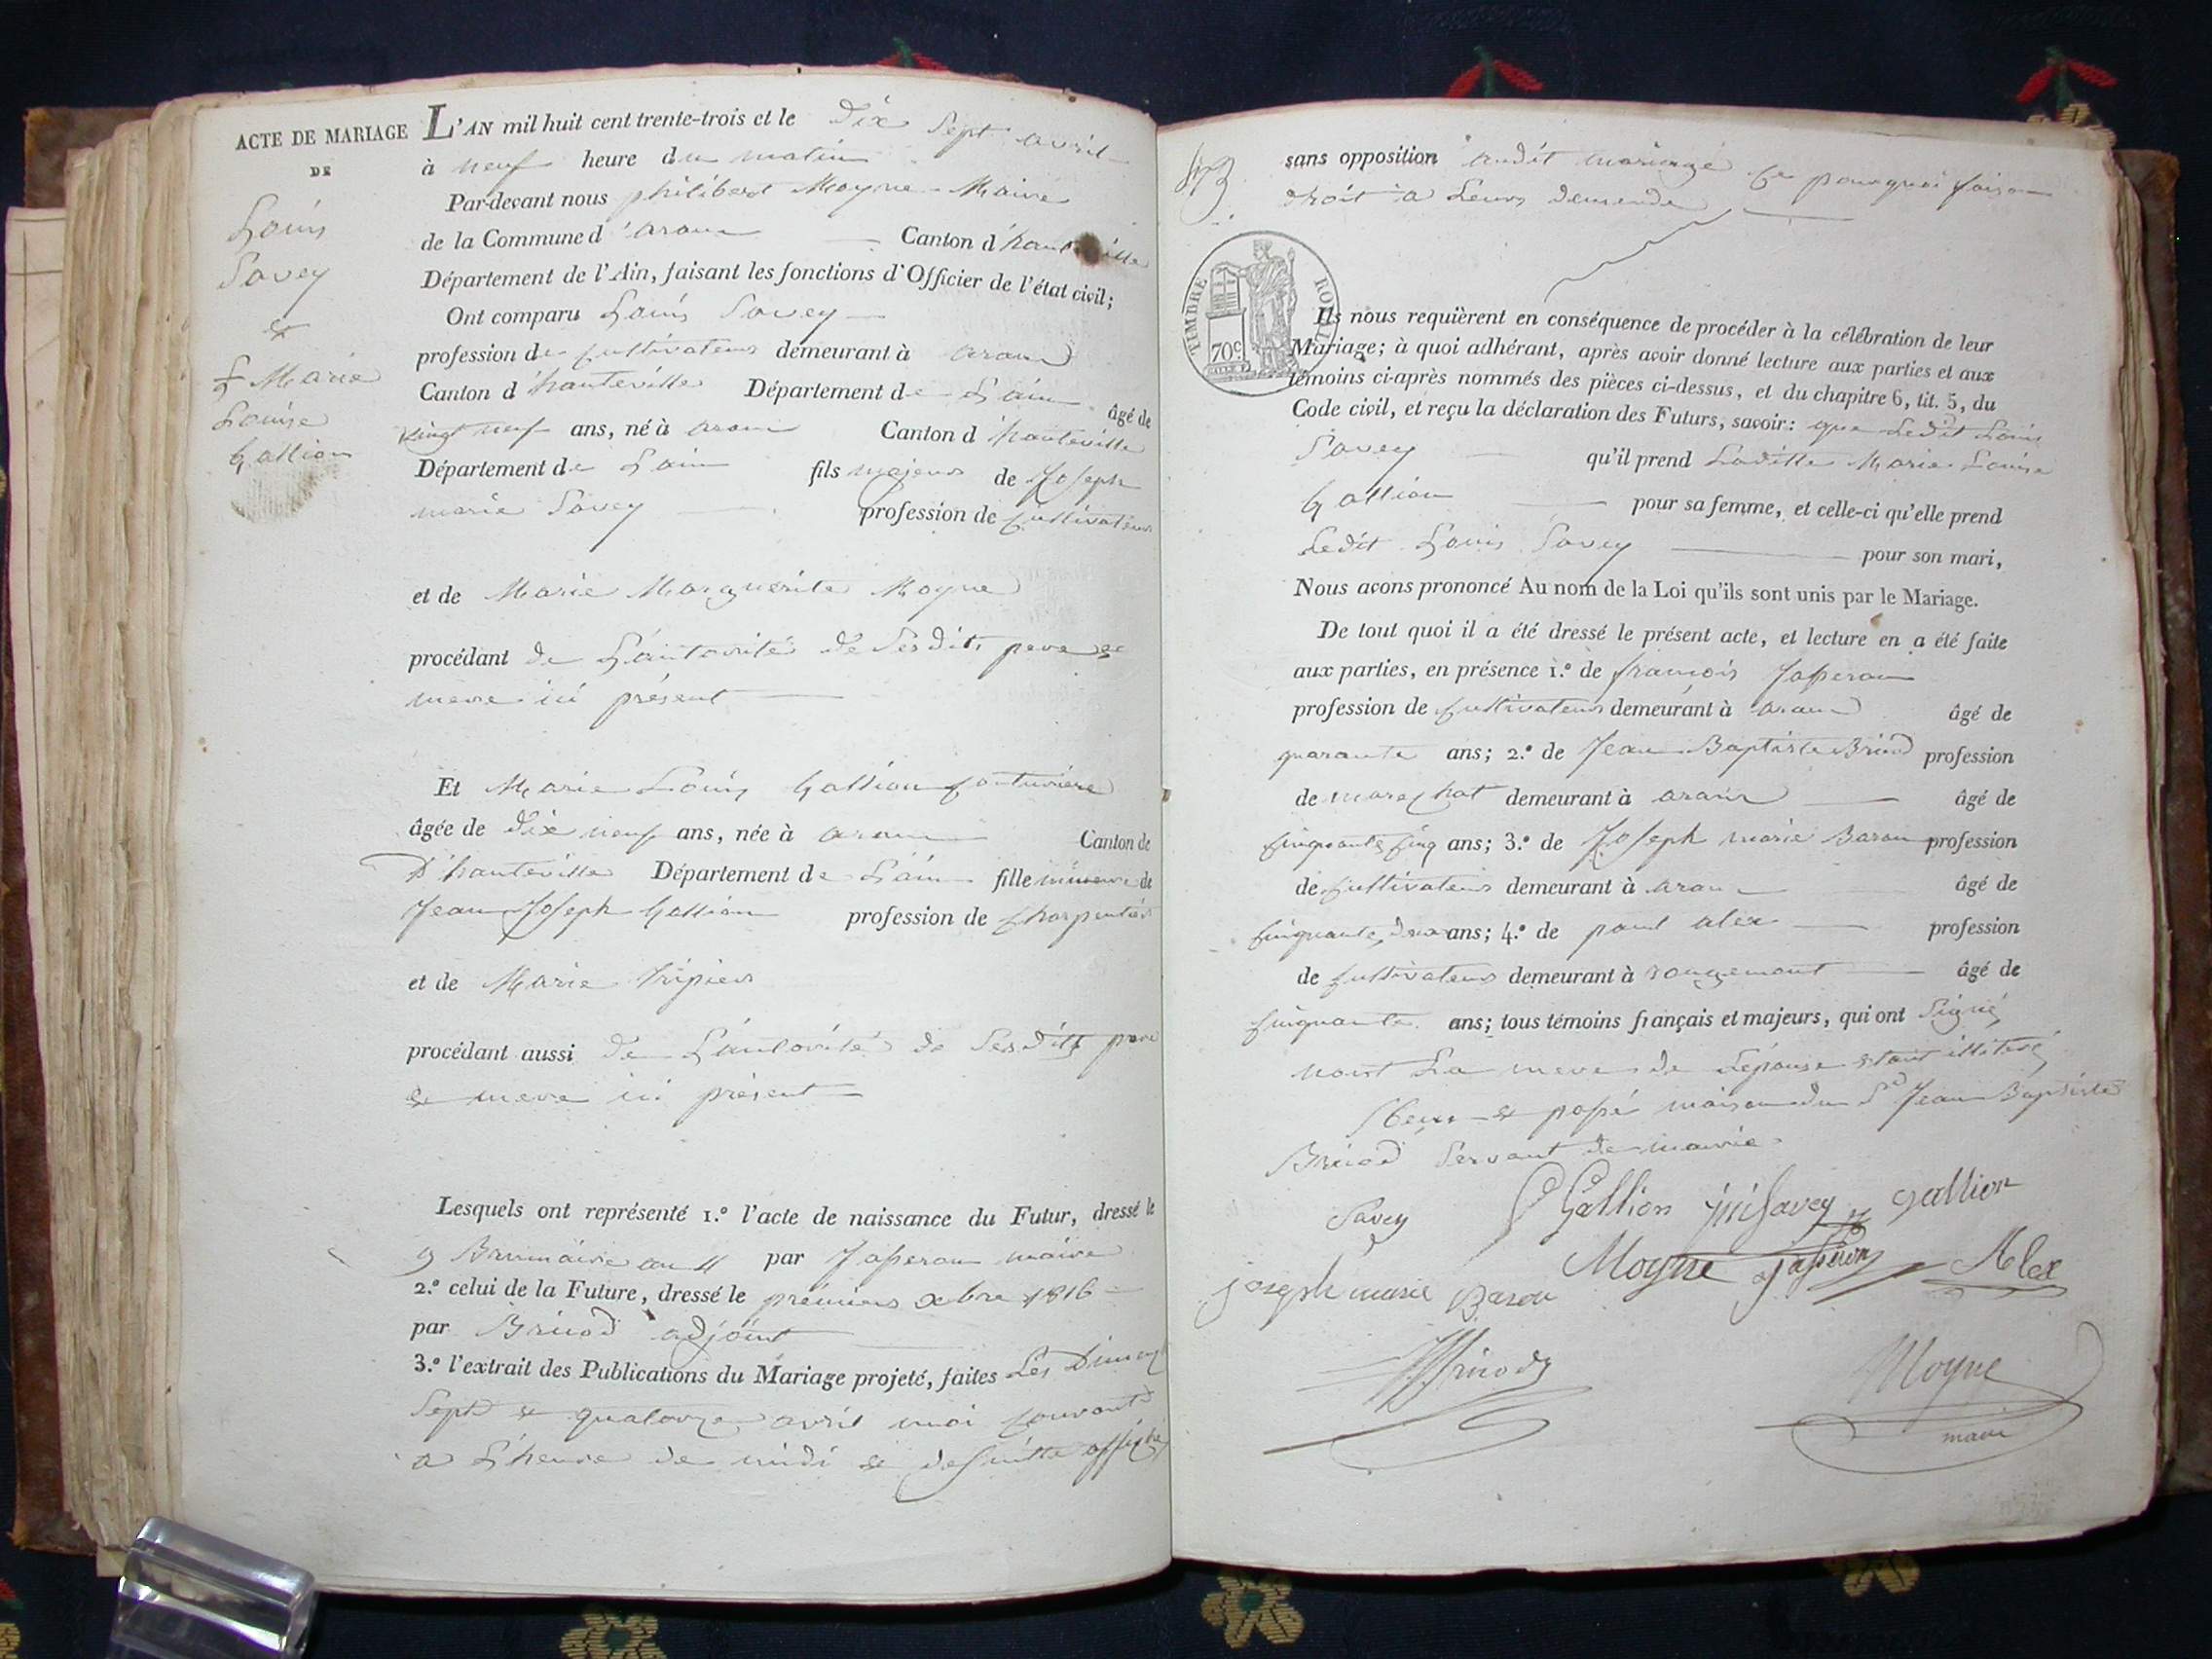 ACTE DE MARIAGE
DE
Louis
Savey
&
Marie
Louise
Gallion
L'AN mil huit cent trente-trois et le dix sept avril
à neuf heure du matin
Par-devant nous philibert Moyne Maire
de la Commune d'aran Canton d'hauteville
Département de l'Ain, faisant les fonctions d'Officier de l'état civil;
Ont comparu Louis Savey
profession de cultivateur demeurant à aran
Canton d'hauteville Département de L'ain âgé de
vingt neuf ans, né à aran Canton d hauteville
Département de Lain fils majeur de Joseph
marie Savey profession de cultivateur
et de Marie Marguerite Moyne
procédant de L'autorité de Sesdits pere et
mere ici présent
Et Marie Louis Gallion couturière
âgée de dix neuf ans, née à aran Canton de
D'hauteville Département de L'ain fille mineure de
Jean Joseph Gallion profession de charpentier
et de Marie tripier
procédant aussi de L'autorité de Sesdits pere
et mere ici présent
Lesquels ont représenté 1.º l'acte de naissance du Futur, dressé le
9 Brumaire an par Jasseran maire
2.º celui de la Future, dressé le premier xbre 1816
par Brucod adjoint
3.º l'extrait des Publications du Mariage projeté, faites Les
Sept et quatorze avril moi courant
a L'heure de midi et desuitte affiché
sans opposition audit mariage Ce pourquoi faison
droit a Leurs demende
TIMBRE ROYAL
70c
Ils nous requièrent en conséquence de procéder à la célébration de leur
Mariage; à quoi adhérant, après avoir donné lecture aux parties et aux
témoins ci-après nommés des pièces ci-dessus, et du chapitre 6, tit. 5, du
Code civil, et reçu la déclaration des Futurs, savoir: que Ledit Louis
Savey qu'il prend Laditte Marie Louise
Gallion pour sa femme, et celle-ci qu'elle prend
Ledit Louis Savey pour son mari,
Nous avons prononcé Au nom de la Loi qu'ils sont unis par le Mariage.
De tout quoi il a été dressé le présent acte, et lecture en a été faite
aux parties, en présence 1.º de françois Jasseran
profession de cultivateur demeurant à aran âgé de
quarante ans; 2.º de Jean Baptiste profession
de marechat demeurant à aran âgé de
cinquante cinq ans; 3.º de Joseph marie Baron profession
de cultivateur demeurant à aran âgé de
cinquante deux ans; 4.º de paul alex profession
de cultivateur demeurant à rougemont âgé de
cinquante ans; tous témoins français et majeurs, qui ont Signé
nont La mere de Lépouse étant illitéré
et passé maison du Sr Jean Baptiste
Brucod Servant de mairie
Savey Gallion Savey Gallion
Moyne Jasseran Alex
joseph marie Baron
Moyne
maire